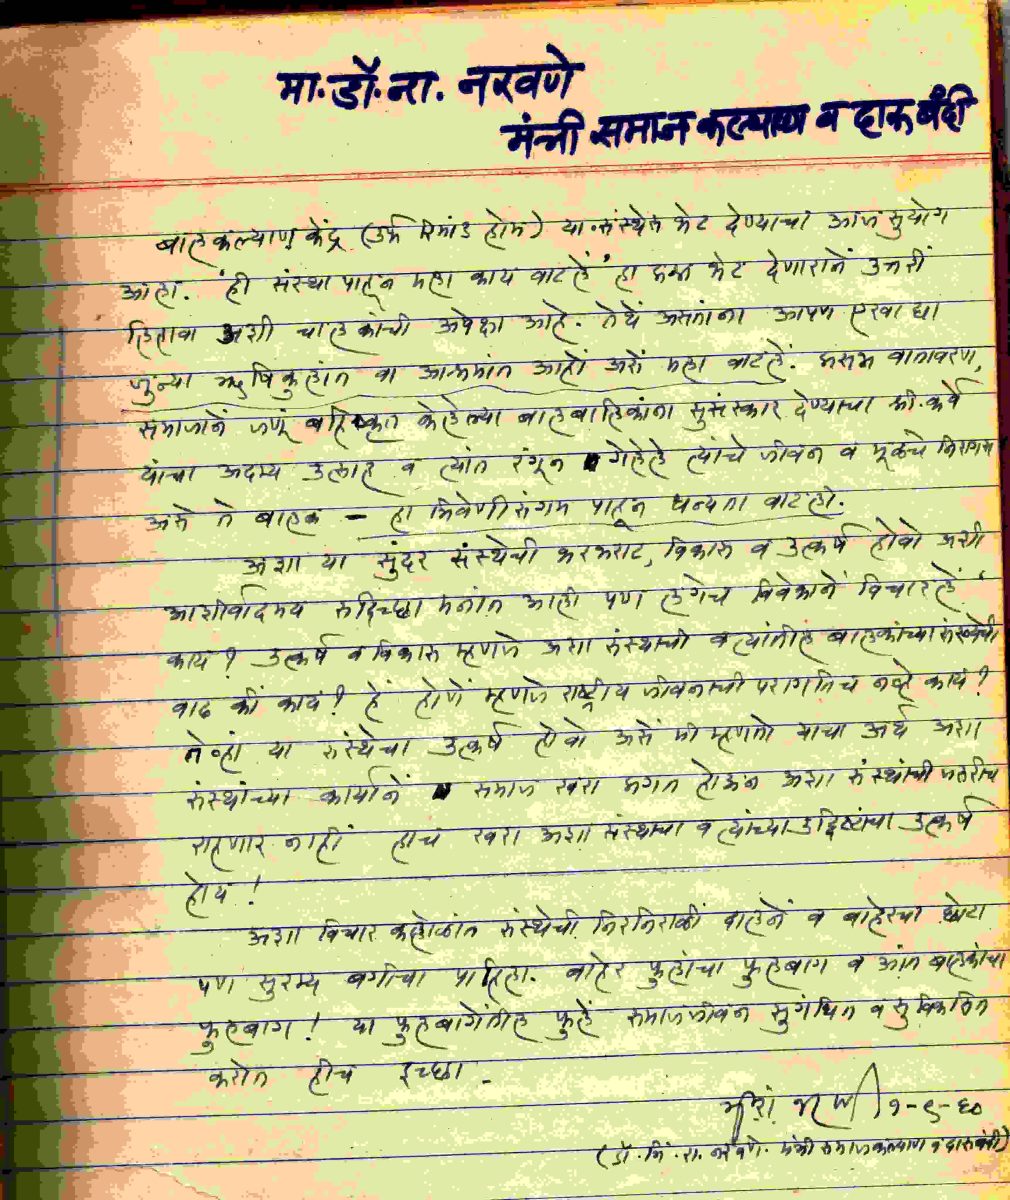 मा. डॉ. ना. नरवणे
मंत्री समाज कल्याण व दारू बंदी
बालकल्याण केंद्र (उर्फ रिमांड होम) या संस्थेस भेट देण्याचा आज सुयोग
आला. ही संस्था पाहून मला काय वाटलें हा प्रश्न भेट देणारानें उत्तरीं
लिहावा अशी चालकांची अपेक्षा आहे. तेथें असतांना आपण एखाद्या
जुन्या ऋषिकुलांत वा आश्रमांत आहों असें मला वाटलें. प्रसन्न वातावरण,
समाजानें जणूं बहिष्कृत केलेल्या बालबालिकांना सुसंस्कार देण्याचा श्री. कर्वे
यांचा अदम्य उत्साह व त्यांत रंगून गेलेले त्यांचे जीवन व मूळचे निरागस
असे ते बालक — हा त्रिवेणी संगम पाहून धन्यता वाटली.
अशा या सुंदर संस्थेची भरभराट, विकास व उत्कर्ष होवो अशी
आशीर्वादमय सदिच्छा मनांत आली पण लगेच विवेकानें विचारलें
काय? उत्कर्ष व विकास म्हणजे अशा संस्थांची व त्यांतील बालकांच्या संख्येची
वाढ कीं काय? हें होणें म्हणजे राष्ट्रीय जीवनाची परागतिच नव्हे काय?
तेव्हां या संस्थेचा उत्कर्ष होवो असें मी म्हणतो याचा अर्थ अशा
संस्थांच्या कार्यानें समाज खरा प्रगत होऊन अशा संस्थांची जरुरीच
राहणार नाहीं हाच खरा अशा संस्थांचा व त्यांच्या उद्दिष्टांचा उत्कर्ष
होय!
अशा विचार कल्लोळांत संस्थेचीं निरनिराळीं दालनें व बाहेरचा छोटा
पण सुरम्य बगीचा पाहिला. बाहेर फुलांचा फुलबाग व आंत बालकांचा
फुलबाग! या फुलबागेंतील फुलें समाजजीवन सुगंधित व सुविकसित
करोत हीच इच्छा.
१-९-६०
(डॉ. त्रिं. रा. नरवणे. मंत्री समाजकल्याण व दारूबंदी)